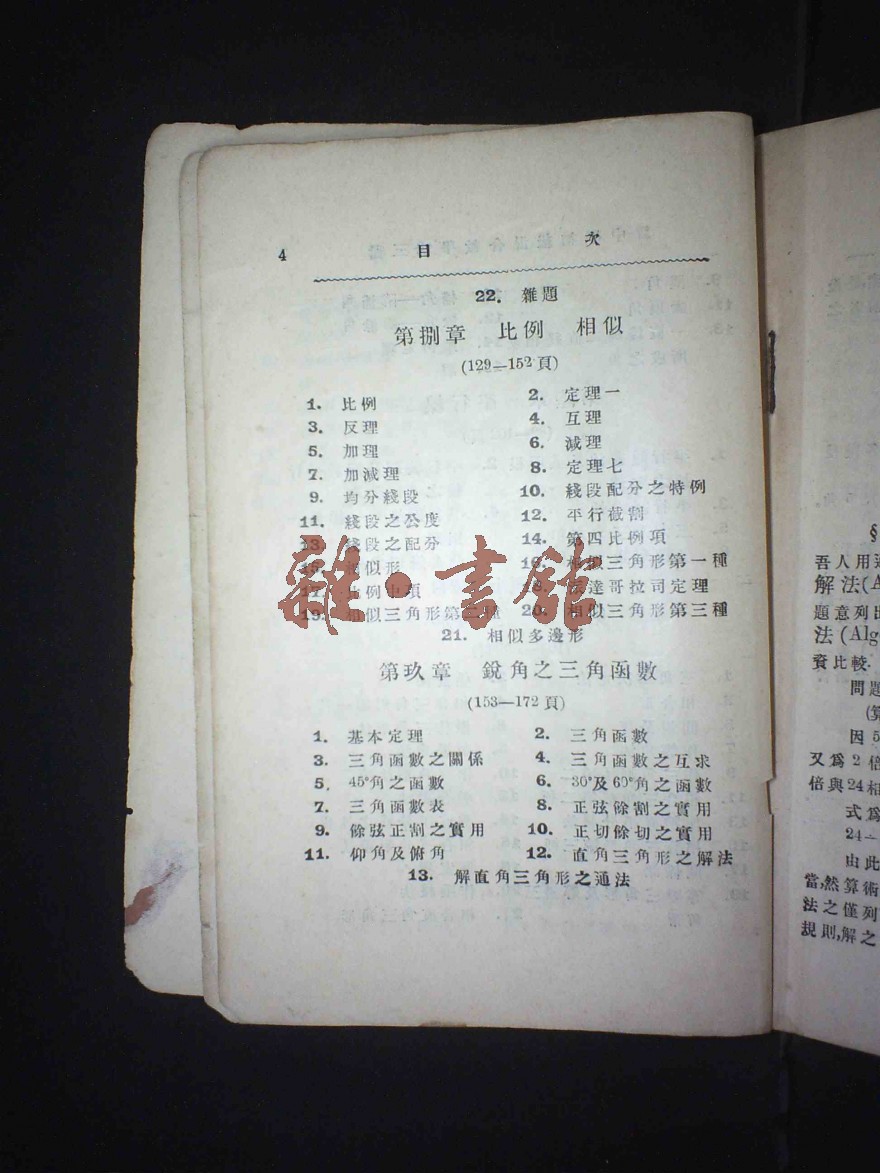 4 目 次
22. 雜題
第捌章 比例 相似
(129—152頁)
1. 比例 2. 定理一
3. 反理 4. 互理
5. 加理 6. 減理
7. 加減理 8. 定理七
9. 均分綫段 10. 綫段配分之特例
11. 綫段之公度 12. 平行截割
13. 綫段之配分 14. 第四比例項
15. 相似形 16. 相似三角形第一種
17. 比例中項 18. 達哥拉司定理
19. 相似三角形第二種 20. 相似三角形第三種
21. 相似多邊形
雜·書館
第玖章 銳角之三角函數
(153—172頁)
1. 基本定理 2. 三角函數
3. 三角函數之關係 4. 三角函數之互求
5. 45°角之函數 6. 30°及60°角之函數
7. 三角函數表 8. 正弦餘割之實用
9. 餘弦正割之實用 10. 正切餘切之實用
11. 仰角及俯角 12. 直角三角形之解法
13. 解直角三角形之通法
§
吾人用
解法(A
題意列出
法(Alg
資比較.
問題
因5
又爲2倍
倍與24相
式爲
24—
由此
當,然算術
法之僅列
規則,解之